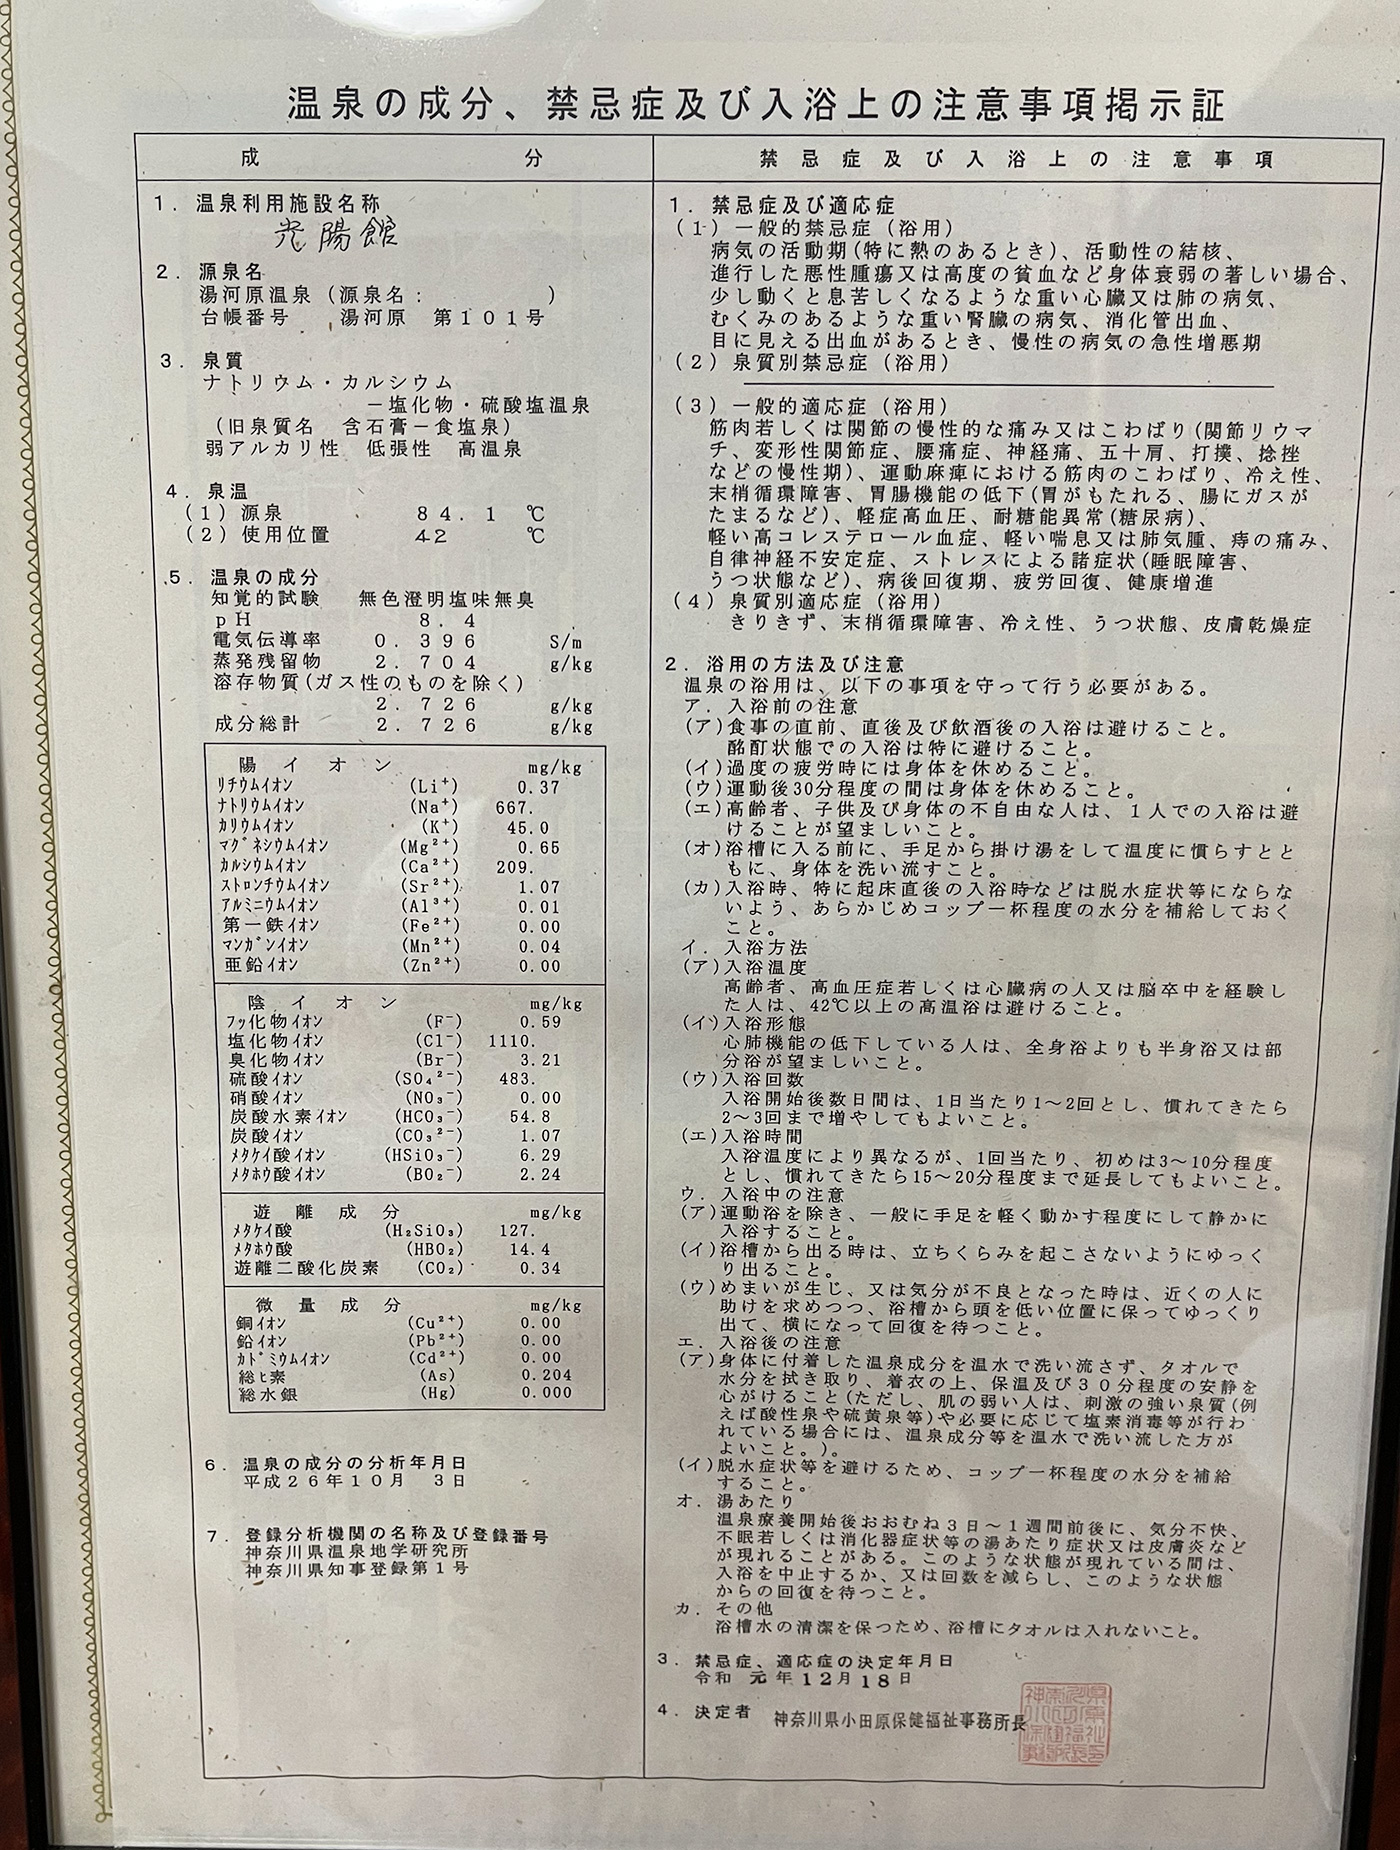 温泉の成分、禁忌症及び入浴上の注意事項掲示証
成 分
1. 温泉利用施設名称
光陽館
2. 源泉名
湯河原温泉（源泉名： ）
台帳番号 湯河原 第101号
3. 泉質
ナトリウム・カルシウム
－塩化物・硫酸塩温泉
（旧泉質名 含石膏－食塩泉）
弱アルカリ性 低張性 高温泉
4. 泉温
(1) 源泉 84.1 ℃
(2) 使用位置 42 ℃
5. 温泉の成分
知覚的試験 無色澄明塩味無臭
pH 8.4
電気伝導率 0.396 S/m
蒸発残留物 2.704 g/kg
溶存物質(ガス性のものを除く)
2.726 g/kg
成分総計 2.726 g/kg
陽イオン mg/kg
ﾘﾁｳﾑｲｵﾝ (Li⁺) 0.37
ﾅﾄﾘｳﾑｲｵﾝ (Na⁺) 667.
ｶﾘｳﾑｲｵﾝ (K⁺) 45.0
ﾏｸﾞﾈｼｳﾑｲｵﾝ (Mg²⁺) 0.65
ｶﾙｼｳﾑｲｵﾝ (Ca²⁺) 209.
ｽﾄﾛﾝﾁｳﾑｲｵﾝ (Sr²⁺) 1.07
ｱﾙﾐﾆｳﾑｲｵﾝ (Al³⁺) 0.01
第一鉄ｲｵﾝ (Fe²⁺) 0.00
ﾏﾝｶﾞﾝｲｵﾝ (Mn²⁺) 0.04
亜鉛ｲｵﾝ (Zn²⁺) 0.00
陰イオン mg/kg
ﾌｯ化物ｲｵﾝ (F⁻) 0.59
塩化物ｲｵﾝ (Cl⁻) 1110.
臭化物ｲｵﾝ (Br⁻) 3.21
硫酸ｲｵﾝ (SO₄²⁻) 483.
硝酸ｲｵﾝ (NO₃⁻) 0.00
炭酸水素ｲｵﾝ (HCO₃⁻) 54.8
炭酸ｲｵﾝ (CO₃²⁻) 1.07
ﾒﾀｹｲ酸ｲｵﾝ (HSiO₃⁻) 6.29
ﾒﾀﾎｳ酸ｲｵﾝ (BO₂⁻) 2.24
遊離成分 mg/kg
ﾒﾀｹｲ酸 (H₂SiO₃) 127.
ﾒﾀﾎｳ酸 (HBO₂) 14.4
遊離二酸化炭素 (CO₂) 0.34
微量成分 mg/kg
銅ｲｵﾝ (Cu²⁺) 0.00
鉛ｲｵﾝ (Pb²⁺) 0.00
ｶﾄﾞﾐｳﾑｲｵﾝ (Cd²⁺) 0.00
総ﾋ素 (As) 0.204
総水銀 (Hg) 0.000
6. 温泉の成分の分析年月日
平成26年10月 3日
7. 登録分析機関の名称及び登録番号
神奈川県温泉地学研究所
神奈川県知事登録第1号
禁忌症及び入浴上の注意事項
1. 禁忌症及び適応症
(1) 一般的禁忌症（浴用）
病気の活動期(特に熱のあるとき)、活動性の結核、
進行した悪性腫瘍又は高度の貧血など身体衰弱の著しい場合、
少し動くと息苦しくなるような重い心臓又は肺の病気、
むくみのあるような重い腎臓の病気、消化管出血、
目に見える出血があるとき、慢性の病気の急性増悪期
(2) 泉質別禁忌症（浴用）
(3) 一般的適応症（浴用）
筋肉若しくは関節の慢性的な痛み又はこわばり(関節リウマ
チ、変形性関節症、腰痛症、神経痛、五十肩、打撲、捻挫
などの慢性期)、運動麻痺における筋肉のこわばり、冷え性、
末梢循環障害、胃腸機能の低下(胃がもたれる、腸にガスが
たまるなど)、軽症高血圧、耐糖能異常(糖尿病)、
軽い高コレステロール血症、軽い喘息又は肺気腫、痔の痛み、
自律神経不安定症、ストレスによる諸症状(睡眠障害、
うつ状態など)、病後回復期、疲労回復、健康増進
(4) 泉質別適応症（浴用）
きりきず、末梢循環障害、冷え性、うつ状態、皮膚乾燥症
2. 浴用の方法及び注意
温泉の浴用は、以下の事項を守って行う必要がある。
ア. 入浴前の注意
(ア)食事の直前、直後及び飲酒後の入浴は避けること。
酩酊状態での入浴は特に避けること。
(イ)過度の疲労時には身体を休めること。
(ウ)運動後30分程度の間は身体を休めること。
(エ)高齢者、子供及び身体の不自由な人は、1人での入浴は避
けることが望ましいこと。
(オ)浴槽に入る前に、手足から掛け湯をして温度に慣らすとと
もに、身体を洗い流すこと。
(カ)入浴時、特に起床直後の入浴時などは脱水症状等にならな
いよう、あらかじめコップ一杯程度の水分を補給しておく
こと。
イ. 入浴方法
(ア)入浴温度
高齢者、高血圧症若しくは心臓病の人又は脳卒中を経験し
た人は、42℃以上の高温浴は避けること。
(イ)入浴形態
心肺機能の低下している人は、全身浴よりも半身浴又は部
分浴が望ましいこと。
(ウ)入浴回数
入浴開始後数日間は、1日当たり1～2回とし、慣れてきたら
2～3回まで増やしてもよいこと。
(エ)入浴時間
入浴温度により異なるが、1回当たり、初めは3～10分程度
とし、慣れてきたら15～20分程度まで延長してもよいこと。
ウ. 入浴中の注意
(ア)運動浴を除き、一般に手足を軽く動かす程度にして静かに
入浴すること。
(イ)浴槽から出る時は、立ちくらみを起こさないようにゆっく
り出ること。
(ウ)めまいが生じ、又は気分が不良となった時は、近くの人に
助けを求めつつ、浴槽から頭を低い位置に保ってゆっくり
出て、横になって回復を待つこと。
エ. 入浴後の注意
(ア)身体に付着した温泉成分を温水で洗い流さず、タオルで
水分を拭き取り、着衣の上、保温及び30分程度の安静を
心がけること(ただし、肌の弱い人は、刺激の強い泉質(例
えば酸性泉や硫黄泉等)や必要に応じて塩素消毒等が行わ
れている場合には、温泉成分等を温水で洗い流した方が
よいこと。)。
(イ)脱水症状等を避けるため、コップ一杯程度の水分を補給
すること。
オ. 湯あたり
温泉療養開始後おおむね3日～1週間前後に、気分不快、
不眠若しくは消化器症状等の湯あたり症状又は皮膚炎など
が現れることがある。このような状態が現れている間は、
入浴を中止するか、又は回数を減らし、このような状態
からの回復を待つこと。
カ. その他
浴槽水の清潔を保つため、浴槽にタオルは入れないこと。
3. 禁忌症、適応症の決定年月日
令和 元年12月18日
4. 決定者 神奈川県小田原保健福祉事務所長